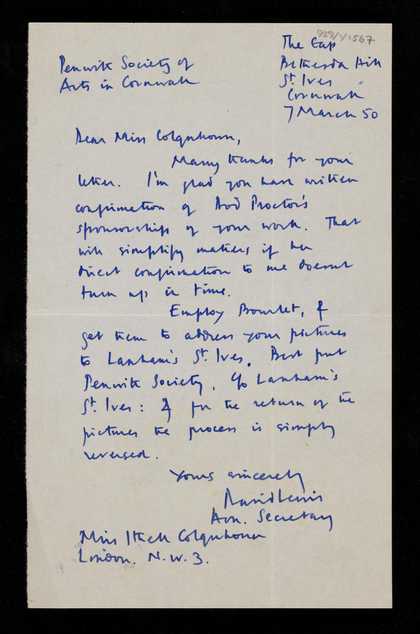 929/1/1567
The Gap
Bethesda Hill
St. Ives
Cornwall
7 March 50
Penwith Society of
Arts in Cornwall
Dear Miss Colquhoun,
Many thanks for your
letter. I'm glad you have written
confirmation of Dod Proctor's
sponsorship of your work. That
will simplify matters if her
direct confirmation to me doesnt
turn up in time.
Employ Bourlet, &
get them to address your pictures
to Lanham's St. Ives. Best put
Penwith Society, c/o Lanham's
St. Ives: & for the return of the
pictures the process is simply
reversed.
Yours sincerely
David Lewis
Hon. Secretary
Miss Ithell Colquhoun
London. N.W.3.